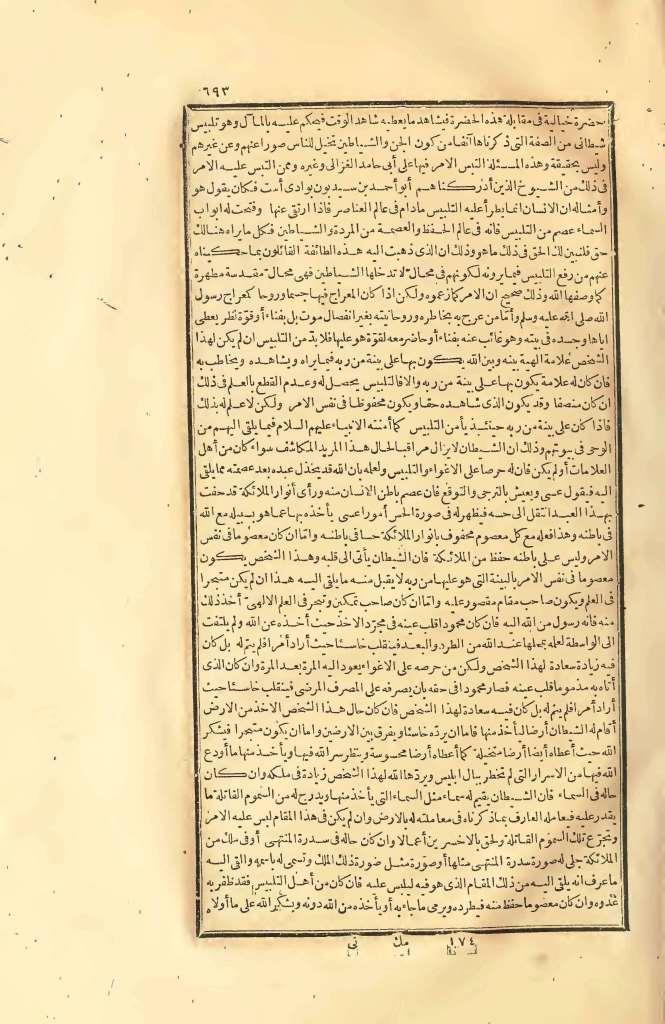 ٦٩٣
حضرة خيالية فى مقابلة هذه الحضرة فيشاهد ما يعطيه شاهد الوقت فيحكم عليه بالمآل وهو تلبيس
شيطانى من الصفة التى ذكرناها آنفا من كون الجن والشياطين تخيل للناس صورا عنهم وعن غيرهم
وليس بحقيقة وهذه المسئلة التبس الامر فيها على أبى حامد الغزالى وغيره وممن التبس عليه الامر
فى ذلك من الشيوخ الذين أدركناهم أبو أحمد بن سيدبون بوادى أست فكان يقول هو
وأمثاله ان الانسان انما يطرأ عليه التلبيس مادام فى عالم العناصر فاذا ارتقى عنها وفتحت له ابواب
السماء عصم من التلبيس فانه فى عالم الحفظ والعصمة من المردة والشياطين فكل ما يراه هنالك
حق فلنبين لك الحق فى ذلك ما هو وذلك ان الذى ذهبت اليه هذه الطائفة القائلون بما حكيناه
عنهم من رفع التلبيس فيما يرونه لكونهم فى محال لا تدخلها الشياطين فهى محال مقدسة مطهرة
كما وصفها الله وذلك صحيح ان الامر كما زعموه ولكن اذا كان المعراج فيها جسما وروحا كمعراج رسول
الله صلى الله عليه وسلم وأما من عرج به بخاطره وروحانيته بغير انفصال موت بل بفناء أو قوة نظر يعطى
اياها وجسده فى بيته وهو غائب عنه بفناء أو حاضر معه لقوة هو عليها فلا بد من التلبيس ان لم يكن لهذا
الشخص علامة الهية بينه وبين الله يكون بها على بينة من ربه فيما يراه ويشاهده ويخاطب به
فان كان له علامة يكون بها على بينة من ربه والا فالتلبيس يحصل له وعدم القطع بالعلم فى ذلك
ان كان منصفا وقد يكون الذى شاهده حقا ويكون محفوظا فى نفس الامر ولكن لا علم له بذلك
فاذا كان على بينة من ربه حينئذ يأمن التلبيس كما أمنته الانبياء عليهم السلام فيما يلقى اليهم من
الوحى فى بيوتهم وذلك ان الشيطان لا يزال مراقبا لحال هذا المريد المكاشف سواء كان من أهل
العلامات أو لم يكن فان له حرصا على الاغواء والتلبيس ولعلمه بان الله قد يخذل عبده بعد عصمته مما يلقى
اليه فيقول عسى ويعيش بالترجى والتوقع فان عصم باطن الانسان منه ورأى أنوار الملائكة قد حفت
بهذا العبد انتقل الى حسه فيظهر له فى صورة الحس أمورا عسى يأخذه بها عما هو بسبيله مع الله
فى باطنه وهذا فعله مع كل معصوم محفوف بانوار الملائكة حسا فى باطنه وأما ان كان معصوما فى نفس
الامر وليس على باطنه حفظ من الملائكة فان الشيطان يأتى الى قلبه وهذا الشخص يكون
معصوما فى نفس الامر بالبينة التى هو عليها من ربه لا يقبل منه ما يلقى اليه هذا ان لم يكن متبحرا
فى العلم ويكون صاحب مقام مقصور عليه وأما ان كان صاحب تمكين وتبحر فى العلم الالهى أخذ ذلك
منه فانه رسول من الله اليه فان كان محمودا قلب عينه فى مجرد الاخذ حيث أخذه عن الله ولم يلتفت
الى الواسطة لعلمه بمحلها عند الله من الطرد والبعد فينقلب خاسئا حيث أراد أمرا فلم يتم له بل كان
فيه زيادة سعادة لهذا الشخص ولكن من حرصه على الاغواء يعود اليه المرة بعد المرة وان كان الذى
أتاه به مذموما قلب عينه فصار محمودا فى حقه بان يصرفه على المصرف المرضى فينقلب خاسئا حيث
أراد أمرا فلم يتم له بل كان فيه سعادة لهذا الشخص فان كان حال هذا الشخص الاخذ من الارض
أقام له الشيطان أرضا ليأخذ منها فاما ان يرده خاسئا ويفرق بين الارضين واما ان يكون متبحرا فيشكر
الله حيث أعطاه أيضا أرضا متخيلة كما أعطاه أرضا محسوسة وينظر سر الله فيها ويأخذ منها ما أودع
الله فيها من الاسرار التى لم تخطر ببال ابليس ويردها الله لهذا الشخص زيادة فى ملكه وان كان
حاله فى السماء فان الشيطان يقيم له سماء مثل السماء التى يأخذ منها ويدرج له من السموم القاتلة ما
يقدر عليه فيعامله العارف بما ذكرناه فى معاملته له بالارض وان لم يكن فى هذا المقام لبس عليه الامر
وتجرع تلك السموم القاتلة ولحق بالاخسرين أعمالا وان كان حاله فى سدرة المنتهى أو فى ملك من
الملائكة جلى له صورة سدرة المنتهى مثلها أو صورة مثل صورة ذلك الملك وتسمى له باسمه وألقى اليه
ما عرف انه يلقى اليه من ذلك المقام الذى هو فيه ليلبس عليه فان كان من أهل التلبيس فقد ظفر به
عدوه وان كان معصوما حفظ منه فيطرده ويرمى ما جاء به أو يأخذه من الله دونه ويشكر الله على ما أولاه
١٧٤ مك نى